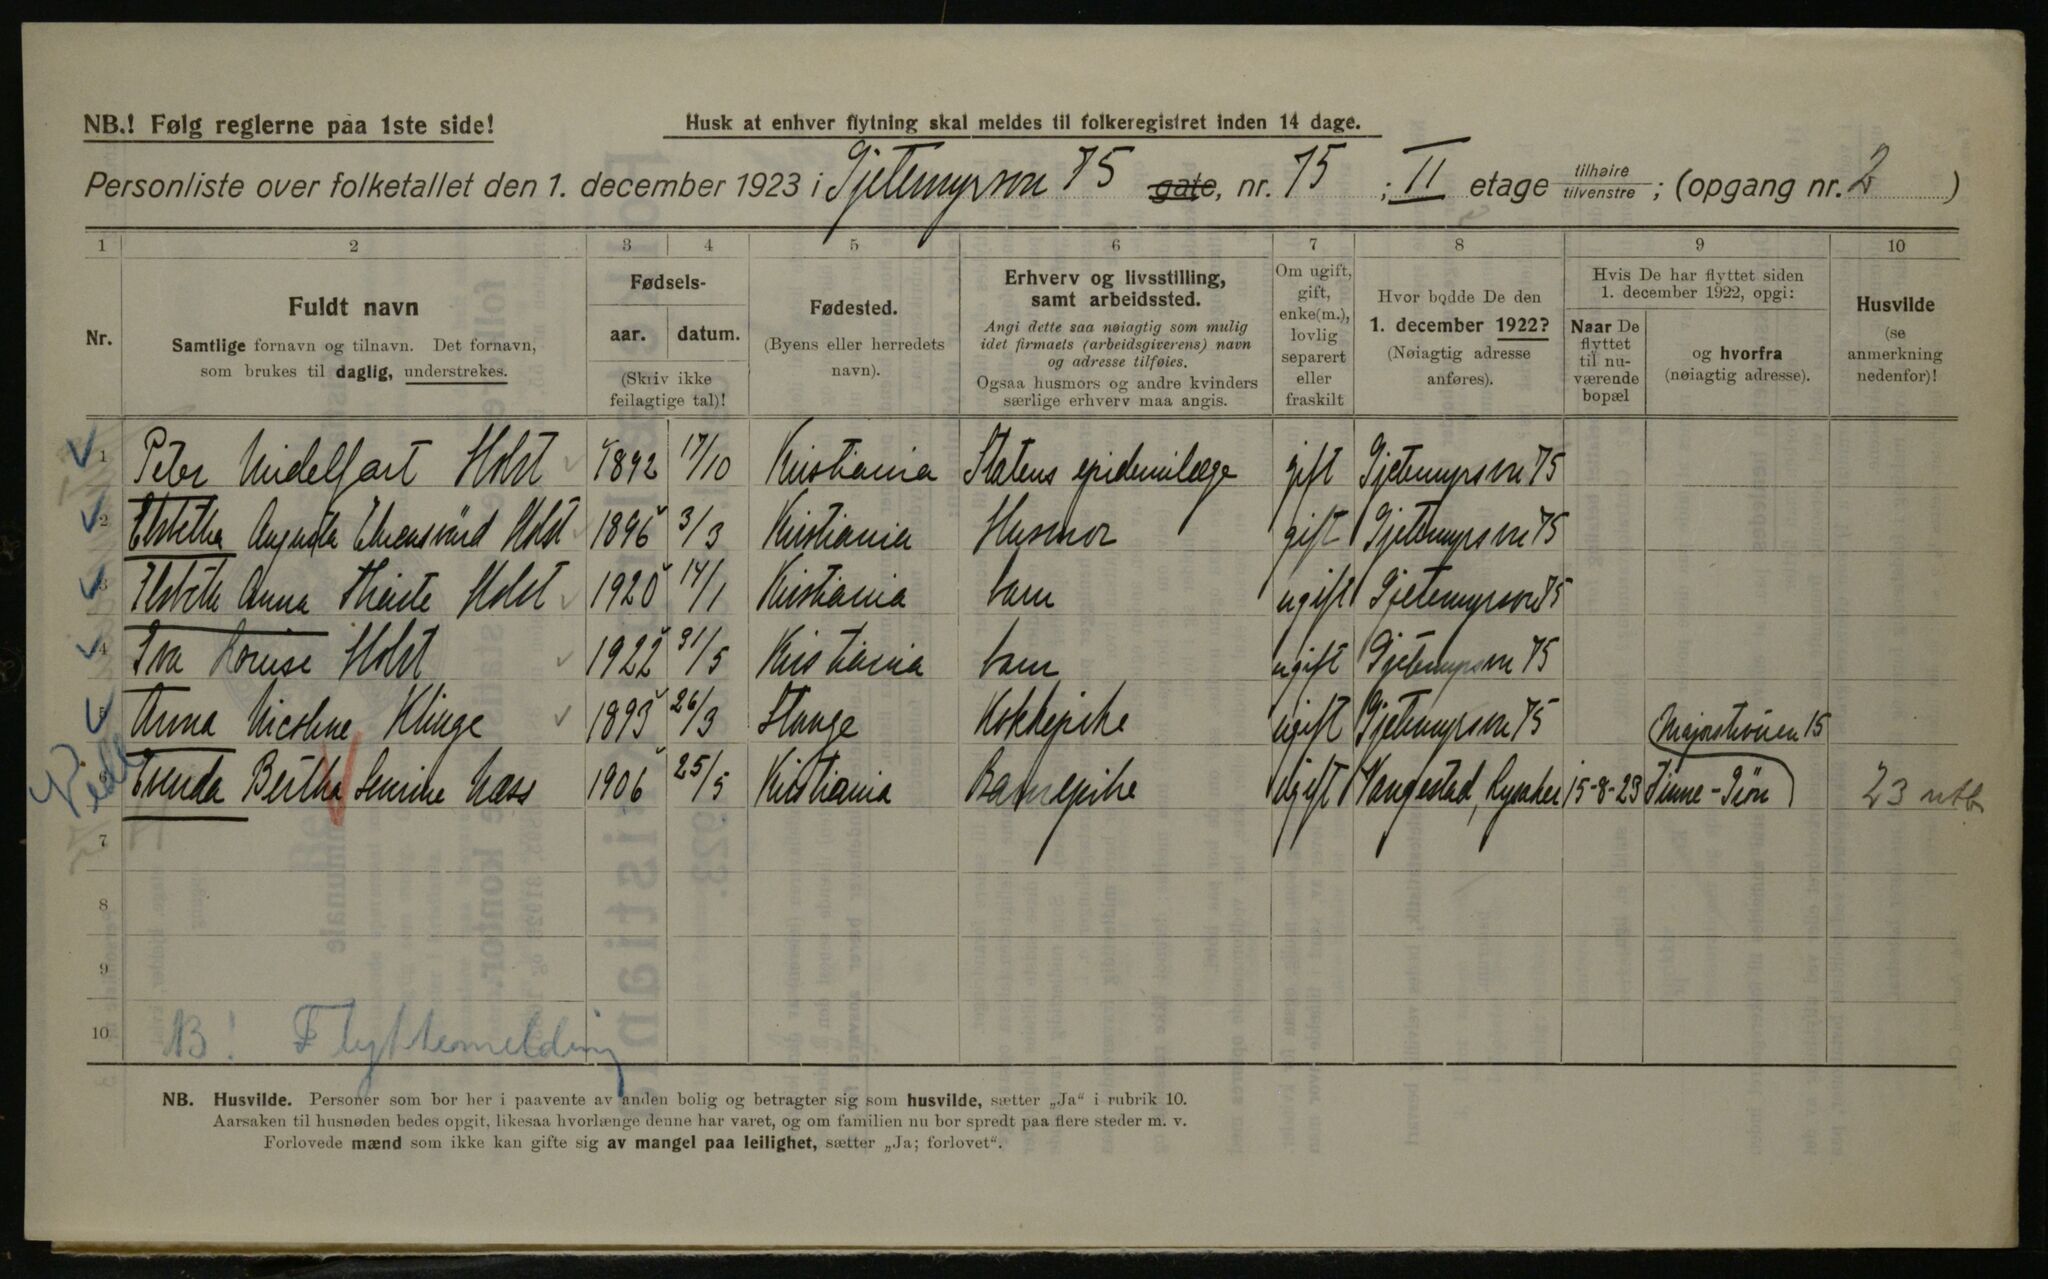 NB.! Følg reglerne paa 1ste side!
Husk at enhver flytning skal meldes til folkeregistret inden 14 dage.
Personliste over folketallet den 1. december 1923 i Gjetemyrsvn 75 gate, nr. 75 ; II etage tilhøire tilvenstre ; (opgang nr. 2 )
1 2 3 4 5 6 7 8 9 10
Nr.
Fuldt navn
Samtlige fornavn og tilnavn. Det fornavn,
som brukes til daglig, understrekes.
Fødsels-
aar. datum.
(Skriv ikke
feilagtige tal)!
Fødested.
(Byens eller herredets
navn).
Erhverv og livsstilling,
samt arbeidssted.
Angi dette saa nøiagtig som mulig
idet firmaets (arbeidsgiverens) navn
og adresse tilføies.
Ogsaa husmors og andre kvinders
særlige erhverv maa angis.
Om ugift,
gift,
enke(m.),
lovlig
separert
eller
fraskilt
Hvor bodde De den
1. december 1922?
(Nøiagtig adresse
anføres).
Hvis De har flyttet siden
1. december 1922, opgi:
Naar De
flyttet
til nu-
værende
bopæl
og hvorfra
(nøiagtig adresse).
Husvilde
(se
anmerkning
nedenfor)!
1 Peter Midelfart Holst 1892 17/10 Kristiania Statens epidemilæge gift Gjetemyrsvn 75
2 Elsbetha Augusta Ehrensvärd Holst 1896 3/3 Kristiania Husmor gift Gjetemyrsvn 75
3 Elsbeth Anna Holst 1920 14/1 Kristiania barn ugift Gjetemyrsvn 75
4 Eva Louise Holst 1922 31/5 Kristiania barn ugift Gjetemyrsvn 75
5 Anna Nicoline Klinge 1893 26/3 Stange Kokkepike ugift Gjetemyrsvn 75
Majorstuveien 15
6 Bertha Næss 1906 25/5 Kristiania Barnepike ugift Vangestad, Lysaker 15-8-23 23
7
8
9
10 NB! Flyttemelding
NB. Husvilde. Personer som bor her i paavente av anden bolig og betragter sig som husvilde, sætter „Ja“ i rubrik 10.
Aarsaken til husnøden bedes opgit, likesaa hvorlænge denne har varet, og om familien nu bor spredt paa flere steder m. v.
Forlovede mænd som ikke kan gifte sig av mangel paa leilighet, sætter „Ja; forlovet“.